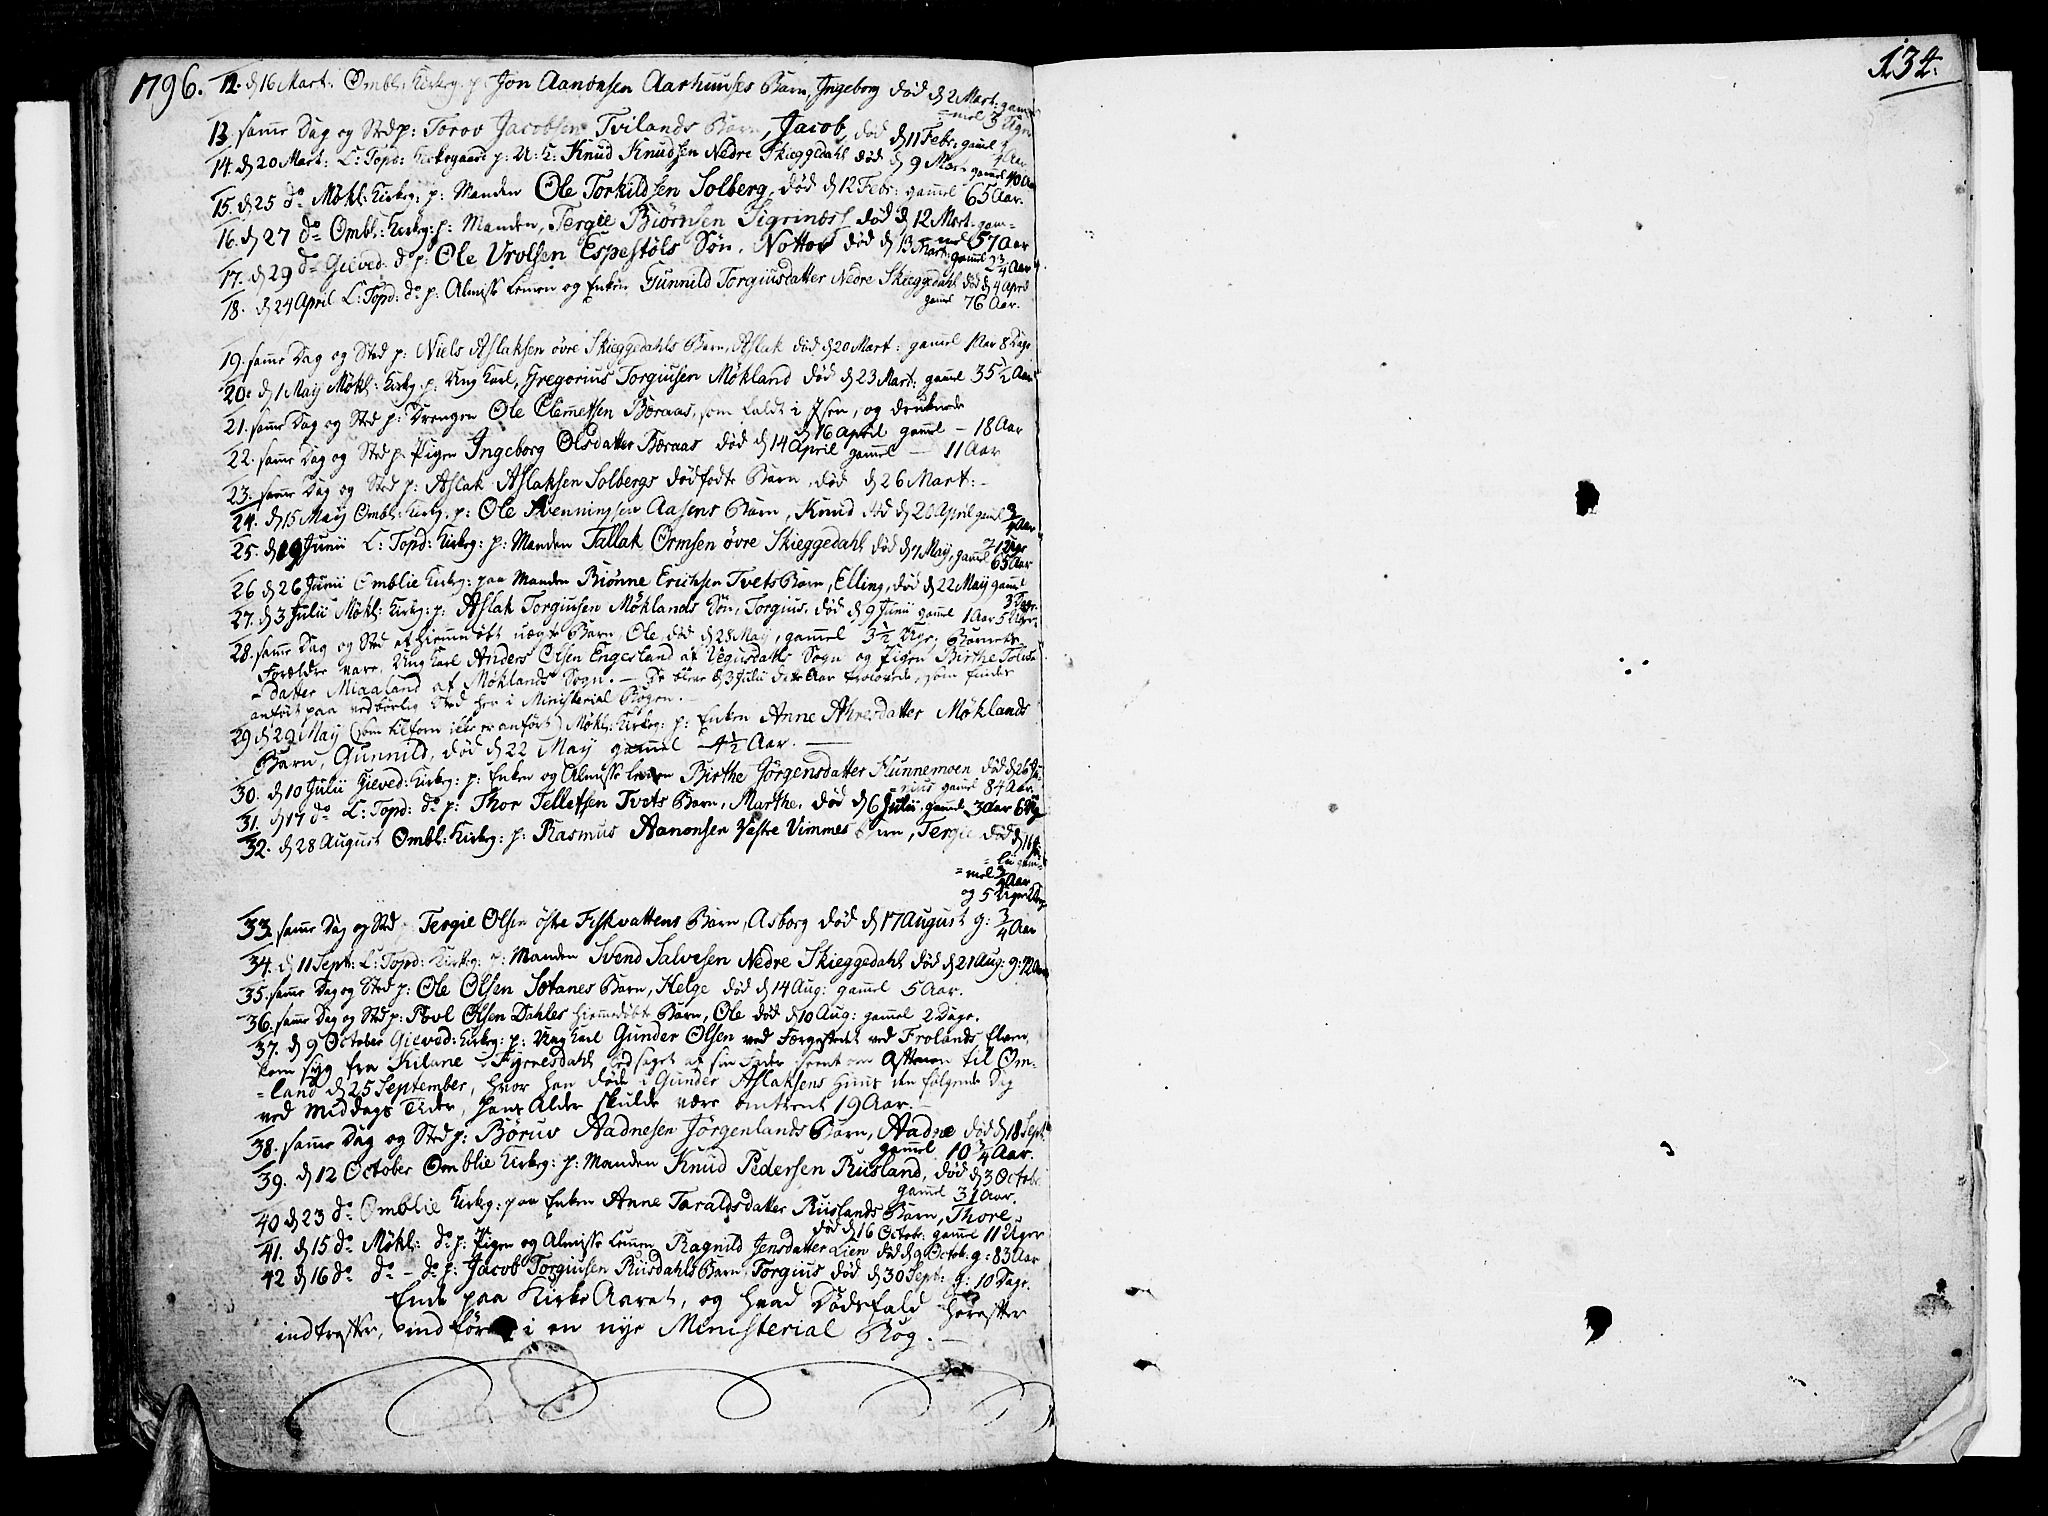 134.
1796. 12. d 16 Mart: Ombl: Kirkeg: p: Jon Aanonsen Aashuuses Barn, Ingeborg død d 2 Mart: gam=
=mel 3 Uger
13. samme Dag og Sted p: Torov Jacobsen Tvilands Barn, Jacob, død d 11 Febr: gamel 1/4 Aar
14. d 20 Mart: L: Topd: Kirkegaard p: U: K: Knud Knudsen Nedre Skieggedahl død d 9 Mart gamel 40 Aar
15. d 25 do Møkl: Kirkeg: p: Manden Ole Torkildsen Solberg, død d 12 Febr: gamel 65 Aar.
16. d 27 do Ombl: Kirkeg: p: Manden, Tergie Biørnsen Sigrinæss død d 12 Mart: gam=
=mel 57 Aar
17. d 29 do Gieved: do p: Ole Vrolsen Espestøls Søn, Nottov død d 13 Mart: gamel 2 3/4 Aar
18. d 24 April L: Topd: do p: Almisse Lemen og Enken Gunnild Torgiusdatter Nedre Skieggedahl død d 4 April
gamel 76 Aar.
19. samme Dag og Sted p: Niels Aslaksen øvre Skieggedahls Barn, Aslak død d 20 Mart: gamel 1 Aar 8 Dage
20. d 1 May Møkl: Kirkeg: p: Ung Karl, Gregorius Torgiusen Møkland død d 23 Mart: gamel 35 1/2 Aar
21. samme Dag og Sted p: Drengen Ole Clemetsen Bæraas, som faldt i Isen, og druknede
d 16 April gamel — 18 Aar
22. samme Dag og Sted p: Pigen Ingeborg Olsdatter Bæraas død d 14 April gamel — 11 Aar
23. samme Dag og Sted p: Aslak Aslaksen Solbergs dødfødte Barn, død d 26 Mart: -
24. d 15 May Ombl: Kirkeg: p: Ole Svenningsen Aasens Barn, Knud død d 20 April gamel 3/4 Aar
2 Uger
25. d 19 Junii L: Topd: Kirkeg: p: Manden Tallak Ormsen øvre Skieggedahl død d 7 May, gamel 65 Aar
26 d 26 Junii Omblie Kirkeg: paa Manden Biønne Erichsen Tvets Barn, Elling, død d 22 May gamel
3 Dage.
27. d 3 Julii Møkl: Kirkeg: p: Aslak Torgiusen Møklands Søn, Torgius, død d 9 Junii gamel 1 Aar 5 Uger
28. samme Dag og Sted et hiemmedøbt uægte Barn, Ole, død d 28 May, gamel 3 1/2 Uge, Barnets
Forældre vare, Ung Karl Anders Olsen Engesland af Vegusdahls Sogn og Pigen Birthe Tolles
datter Miaaland af Møklands Sogn. — De bleve d 3 Julii dette Aar trolovede, som findes
anført paa vedbørlig Sted her i Ministerial Bogen. -
29 d 29 May (som tilforn ikke er anført) Møkl: Kirkeg: p: Enken Anne Ahresdatter Møklands
Barn, Gunnild, død d 22 May gamel 4 1/2 Aar. —
30. d 10 Julii Gieved: Kirkeg: p: Enken og Almisse Lemen Birthe Jørgensdatter Hunnemoen død d 26 Ju=
=nius gamel 84 Aar.
31. d 17 do L: Topd: do p: Thor Tellefsen Tvets Barn, Marthe, død d 6 Julii, gamel 3 Aar 6 Uger
32. d 28 August Ombl: Kirkeg: p: Rasmus Aanonsen Vestre Vimmes Barn, Tergie død d 16 Ju
=lii gam=
=mel 3/4 Aar
og 5 Uger 2 Dage
33. samme Dag og Sted Tergie Olsen østre Fiskvattens Barn, Asborg død d 17 August g: 3/4 Aar
34. d 11 Sept: L: Topd: Kirkeg: p: Manden Svend Salvesen Nedre Skieggedahl død d 21 Aug: g: 72 Aar
35. samme Dag og Sted p: Ole Olsen Sotanes Barn, Helge død d 14 Aug: gamel 5 Aar.
36. samme Dag og Sted p: Povl Olsen Dahles hiemmedøbt Barn, Ole død d 10 Aug: gamel 2 Dage.
37. d 9 October Gieved: Kirkeg: p: Ung Karl Gunder Olsen ved Færgestedet ved Frolands Elven,
kom syg fra Kilane i Fyrresdahl ledsaget af sin Fader sent om Aftenen til Om=
=land d 25 September, hvor han døde i Gunder Aslaksens Huus den følgende Dag
ved Middags Tider, hans Alder skulde være omtrent 19 Aar. -
38. samme Dag og Sted p: Børuv Aadnesen Jørgenlands Barn, Aadne død d 18 Sept:
gamel 10 3/4 Aar.
39. d 12 October Omblie Kirkeg: p: Manden Knud Pedersen Riisland, død d 3 Octobr:
gamel 31 Aar.
40 d 23 do Omblie Kirkeg: paa Enken Anne Taraldsdatter Riislands Barn, Thore,
død d 16 Octobr: gamel 11 Uger
41. d 15 do Møkl: do p: Pigen og Almisse Lemen Ragnild Jensdatter Lien død d 9 Octob: g: 83 Aar
42 d 16 do do - do p: Jacob Torgiusen Riisdahls Barn, Torgius død d 30 Sept: g: 10 Dage.
Ende paa Kirke Aaret, og hvad Dødsfald herefter
indtreffer, indføres i en nye Ministerial Bog. —